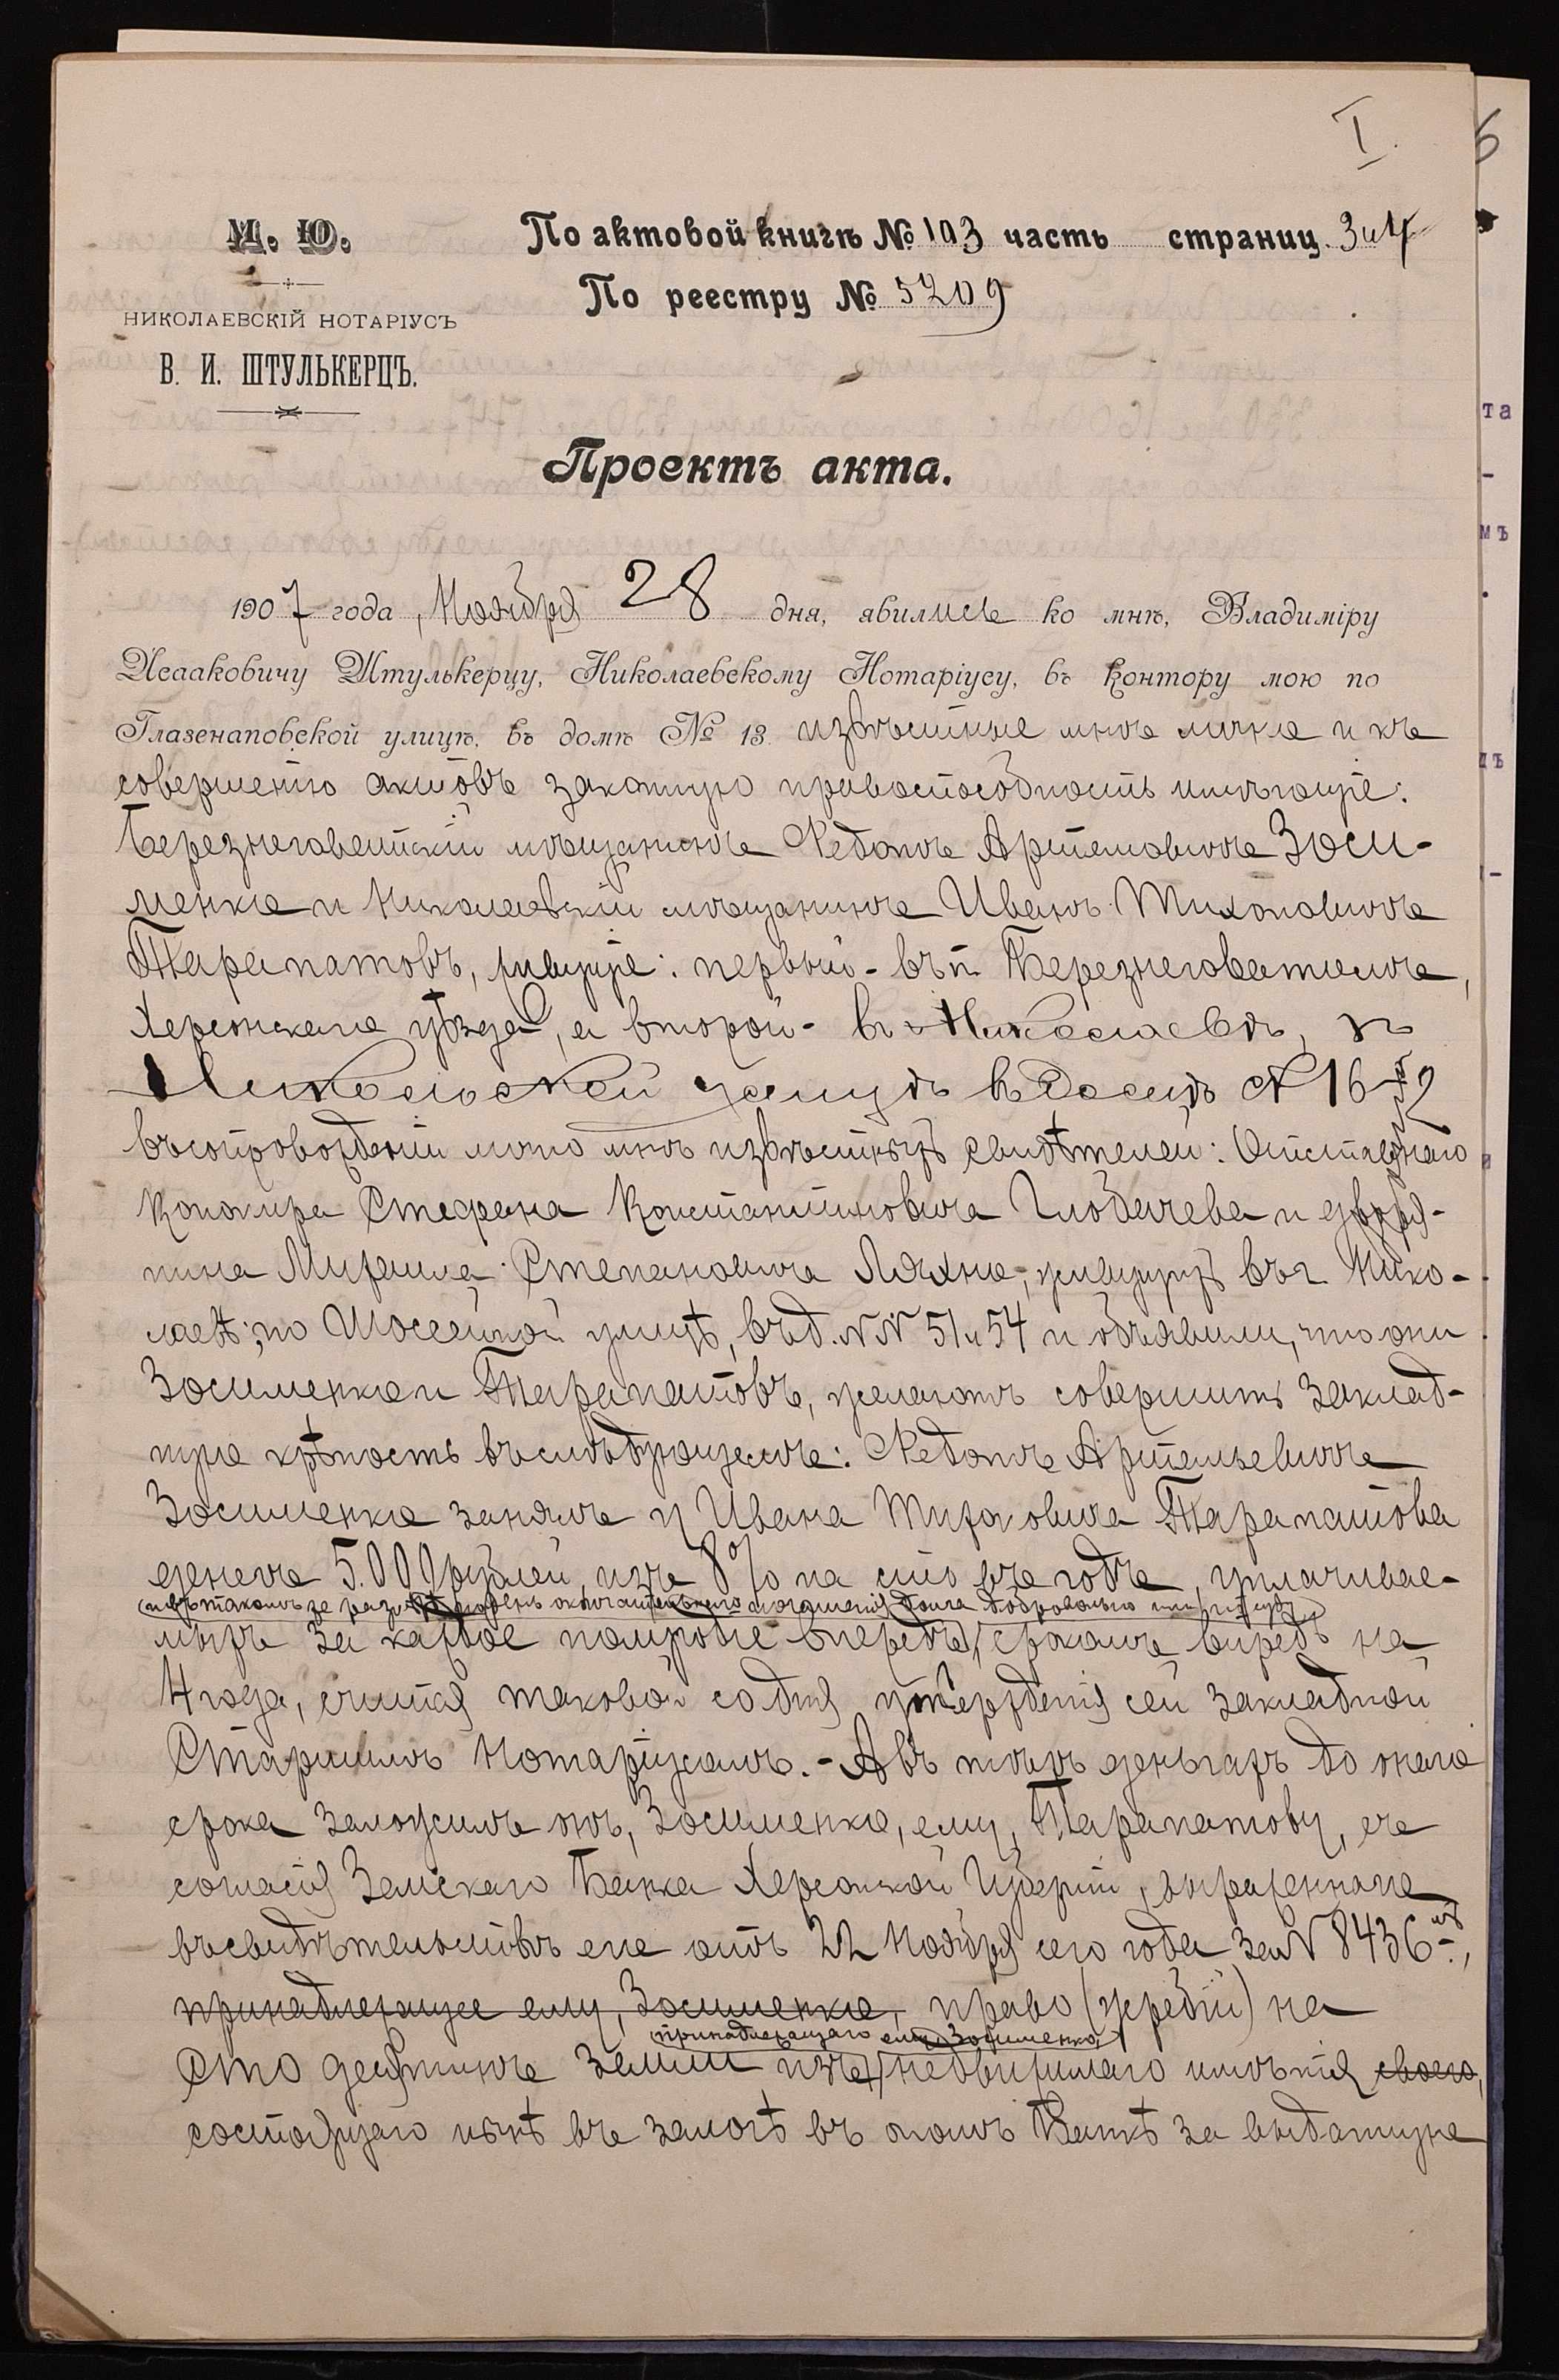 I.
М. Ю.
По актовой книгѣ № 103 часть страниц. 3 и 4
По реестру № 5209
НИКОЛАЕВСКІЙ НОТАРІУСЪ
В. И. ШТУЛЬКЕРЦЪ.
Проектъ акта.
1907 года, Ноября 28 дня, явились ко мнѣ, Владиміру
Исааковичу Штулькерцу, Николаевскому Нотаріусу, въ контору мою по
Глазенаповской улицѣ, въ домѣ № 13 извѣстные мнѣ лично и къ
совершенію актовъ законную правоспособность имѣющіе:
Березнеговатскій мѣщанинъ Федотъ Артемовичъ Зоси-
менко и Николаевскій мѣщанинъ Иванъ Тихоновичъ
Тарапатовъ, живущіе: первый - въ п. Березнеговатомъ,
Херсонскаго уѣзда, а второй - въ г. Николаевѣ, по
улицѣ въ домѣ № 16
въ сопровожденіи лично мнѣ извѣстныхъ свидѣтелей: Отставнаго
Стефана Константиновича и дворя-
нина Михаила Степановича Ляхно, живущихъ въ г. Нико-
лаевѣ, по улицѣ, въ д. №№ 51 и 54 и объявили, что они
Зосименко и Тарапатовъ, желаютъ совершить заклад-
ную крѣпость въ слѣдующемъ: Федотъ Артемьевичъ
Зосименко занялъ у Ивана Тихоновича Тарапатова
денегъ 5.000 рублей, изъ 8% на сто въ годъ, уплачивае-
(и въ такомъ же день окончательнаго погашенія долга добровольно или
мыхъ за каждое полугодіе впередъ, срокомъ впредь на
4 года, считая таковой со дня утвержденія сей закладной
Старшимъ Нотаріусомъ. - А въ тѣхъ деньгахъ до онаго
срока заложилъ онъ, Зосименко, ему, Тарапатову, съ
согласія Земскаго Банка Херсонской Губерніи, выраженнаго
въ свидѣтельствѣ его отъ 22 Ноября сего года за № 8436,
принадлежащее ему, Зосименко, право (жребій) на
принадлежащаго ему, Зосименко,
Сто десятинъ земли изъ недвижимаго имѣнія своего,
состоящаго нынѣ въ залогѣ въ ономъ Банкѣ за выданную
та
-
мъ